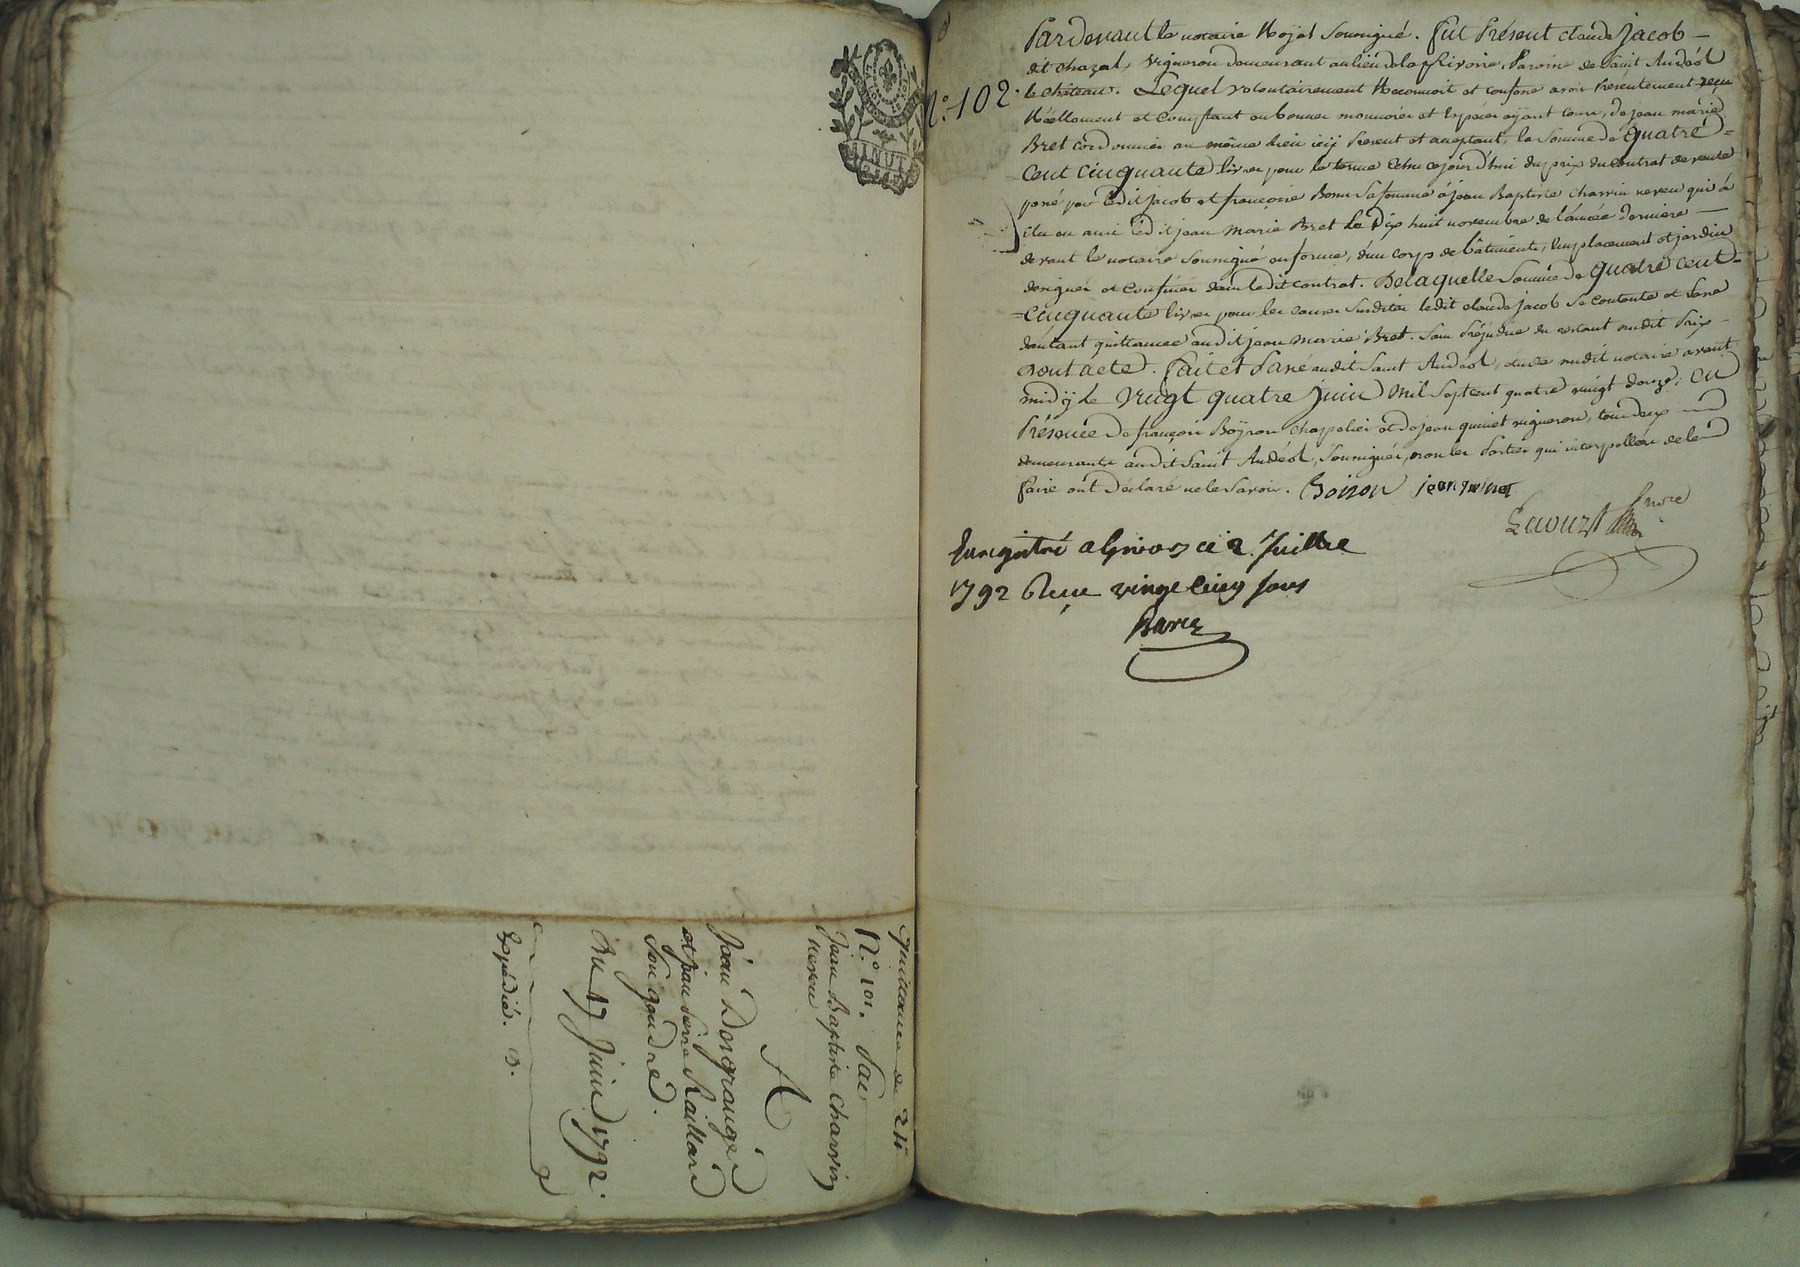 Quittance de 211
N.° 101. Par
Jean Baptiste Charvin
neveu
A
Jean Desgrange
et jean pierre Raillard
Son gendre.
Du 17 Juin 1792.
Expédié. 3.
MINUT
N.° 102.
Pardevant le notaire Royal soussigné. Fut Présent claude Jacob
dit chazal, vigneron demeurant au lieu de la Rivoire, Paroisse de saint Andéol
le château. Lequel volontairement Reconnoit et confesse avoir Presentement reçu
Réellement et Comptant en bonnes monnoies et Espèces ayant cours, de jean marie
Bret cordonnier au même lieu icy Present et acceptant, la Somme de quatre
Cent cinquante livres pour le terme échu ce jourd'hui du prix du contrat de vente
passé par ledit jacob et françoise Bonn sa femme à jean Baptiste charvin neveu qui a
élu en ami ledit jean Marie Bret le Dix huit novembre de l'année derniere
devant le notaire soussigné en forme, d'un corps de bâtiments, Emplacement et jardin
designés et confinés dans ledit contrat. De laquelle Somme de quatre cent
cinquante livres pour les causes susdites ledit claude jacob se contente et passe
d'autant quittance audit jean marie Bret. Sans Préjudice du restant audit Prix
dont acte. Fait et Passé audit saint Andéol, étude dudit notaire avant
midy le vingt quatre Juin Mil Sept cent quatre vingt douze, en
Présence de françois Boÿron chapelier et de jean quinet vigneron, tous deux
demeurants audit Saint Andéol, soussignés, non les Parties qui interpellées de le
faire ont déclaré ne le savoir. Boiron jean quinet
Enregistré a Givors ce 2. Juillet
1792 Reçu vingt cinq sous